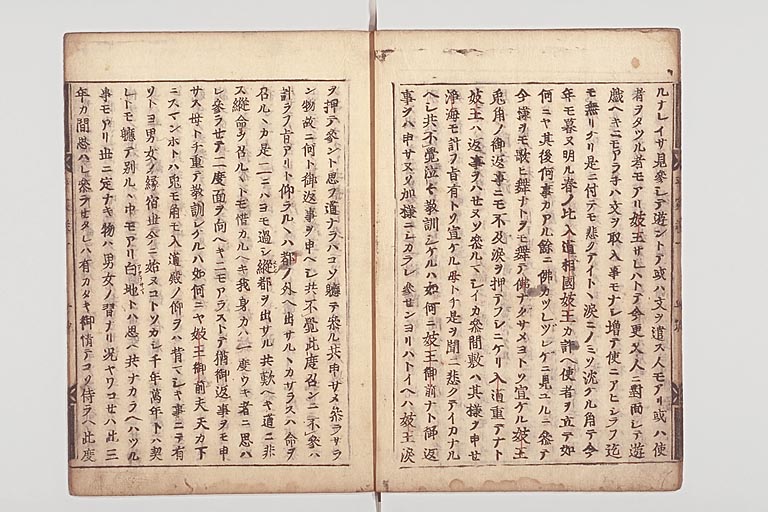 ルナレイサ見参シテ遊ントテ或ハ文ヲ遣ス人モアリ或ハ使
者ヲタツル者モアリ妓王サレハトテ今更又人ニ對面シテ遊
戯ヘキニモアラ子ハ文ヲ取入事モナシ増テ使ニアヒシラフ迄
モ無リケリ是ニ付テモ悲クテイトヽ涙ニノミソ沈ケル角テ今
年モ暮ヌ明ル春ノ比入道相國妓王カ許ヘ使者ヲ立テ如
何ニヤ其後何事カアル餘ニ佛カツレヅレゲニ見エルニ参テ
今様ヲモ歌ヒ舞ナトヲモ舞テ佛ナクサメヨトソ宣ケル妓王
兎角ノ御返事ニモ不及涙ヲ押テフシニケリ入道重テナト
妓王ハ返事ヲハせヌソ参ルマシイカ参間敷ハ其様ヲ申せ
浄海モ計フ旨有トソ宣ケル母トチ是ヲ聞ニ悲クテイカナル
ヘシ共不覺泣々教訓シケルハ如何ニ妓王御前ナト御返
事ヲハ申サヌソ加様ニシカラレ参せンヨリハトイヘハ妓王涙
ヲ押テ参ント思フ道ナラハコソ軈テ参ル共申サメ参ラサラ
ン物故ニ何ト御返事ヲ申ヘシ共不覺此度召ンニ不参ハ
計ラフ旨アリト仰ラルヽハ都ノ外ヘ出サルヽカサラスハ命ヲ
召ルヽカ是二ニハヨモ過シ縦都ヲ出サル共歎ヘキ道ニ非
ス縦命ヲ召ルヽトモ惜カルヘキ我身カハ一度ウキ者ニ思ハ
レ参ラせテ二度面ヲ向ヘキニモアラストテ猶御返事ヲモ申
サス母トチ重テ教訓シケルハ如何ニヤ妓王御前夫天カ下
ニスマンホトハ兎モ角モ入道殿ノ仰ヲハ背マシキ事ニテ有
ソトヨ男女ノ縁宿世今ニ始ヌコトソカシ千年萬年トハ契
レトモ軈テ別ルヽ中モアリ白地トハ思ヘ共ナカラヘハツル
事モアリ世ニ定ナキ物ハ男女ノ習ナリ況ヤワコせハ此三
年カ間思ハレ参ラせタレハ有カタキ御情テコソ侍ラヘ此度